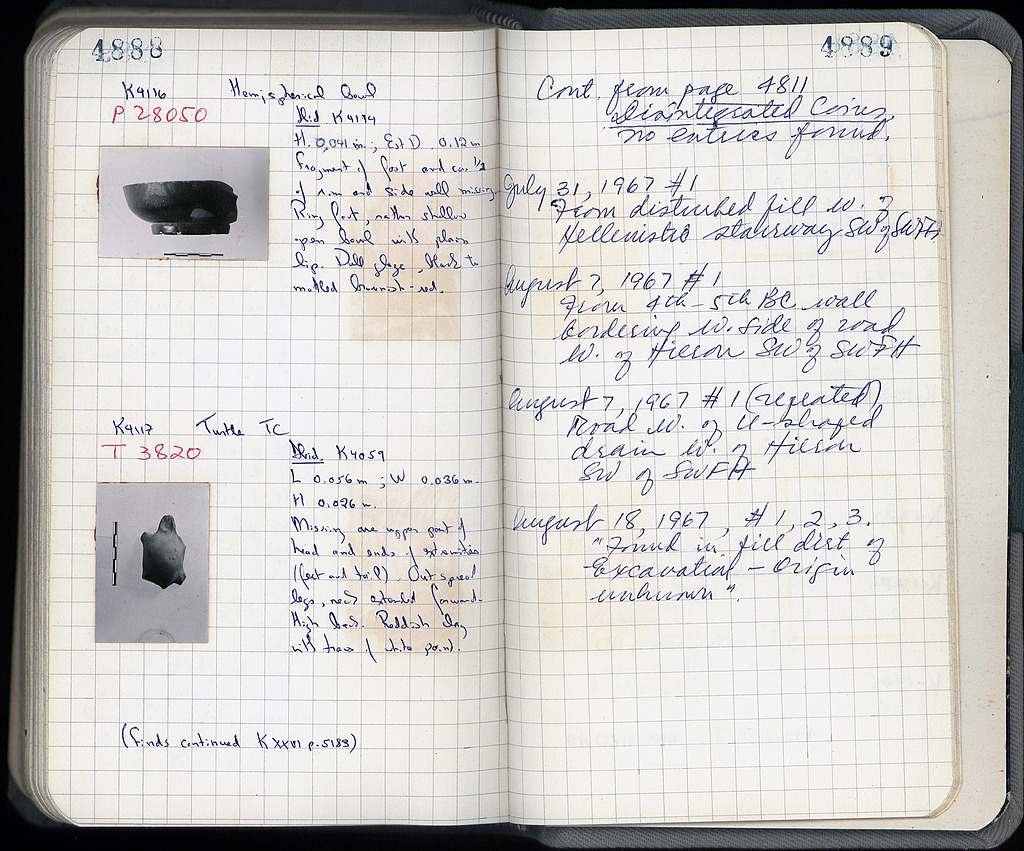 4888
K4116 Hemispherical bowl
P 28050
Ibid K4174
H. 0.041 m.; Est D. 0.12 m
Fragment of foot and ca. 1/2
of rim and side wall missing.
Ring foot, rather shallow
open bowl with plain
lip. Dull glaze, black to
mottled brownish-red.
K4117 Turtle TC
T 3820
Ibid. K4059
L 0.056 m ; W 0.036 m.
H 0.026 m.
Missing are upper part of
head and ends of extremities
(feet and tail). Outspread
legs, neck extended forward.
High back. Reddish clay
with traces of white paint.
(finds continued K XXVI p. 5183)
4889
Cont. from page 4811
Disintegrated Coins,
no entries found.
July 31, 1967 #1
From disturbed fill W. of
Hellenistic stairway SW of SWFH
August 7, 1967 #1
From 4th - 5th BC wall
bordering W. side of road
W. of Hieron SW of SWFH
August 7, 1967 #1 (repeated)
Road W. of U-shaped
drain W. of Hieron
SW of SWFH
August 18, 1967, #1, 2, 3.
"Found in fill dist of
Excavation - Origin
unknown".